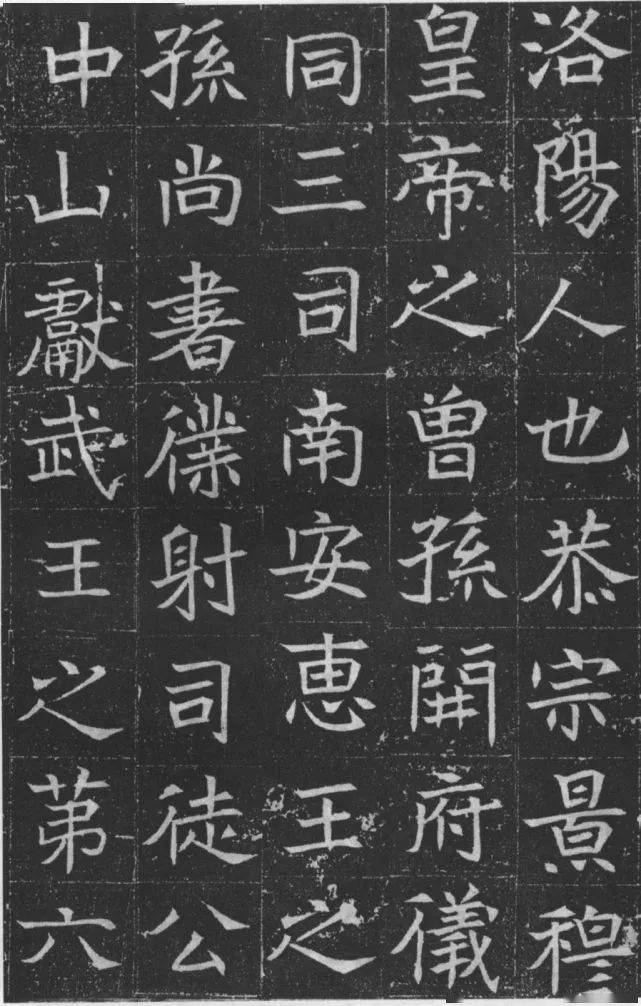 洛陽人也恭宗景穆
皇帝之曾孫開府儀
同三司南安惠王之
孫尚書僕射司徒公
中山獻武王之第六